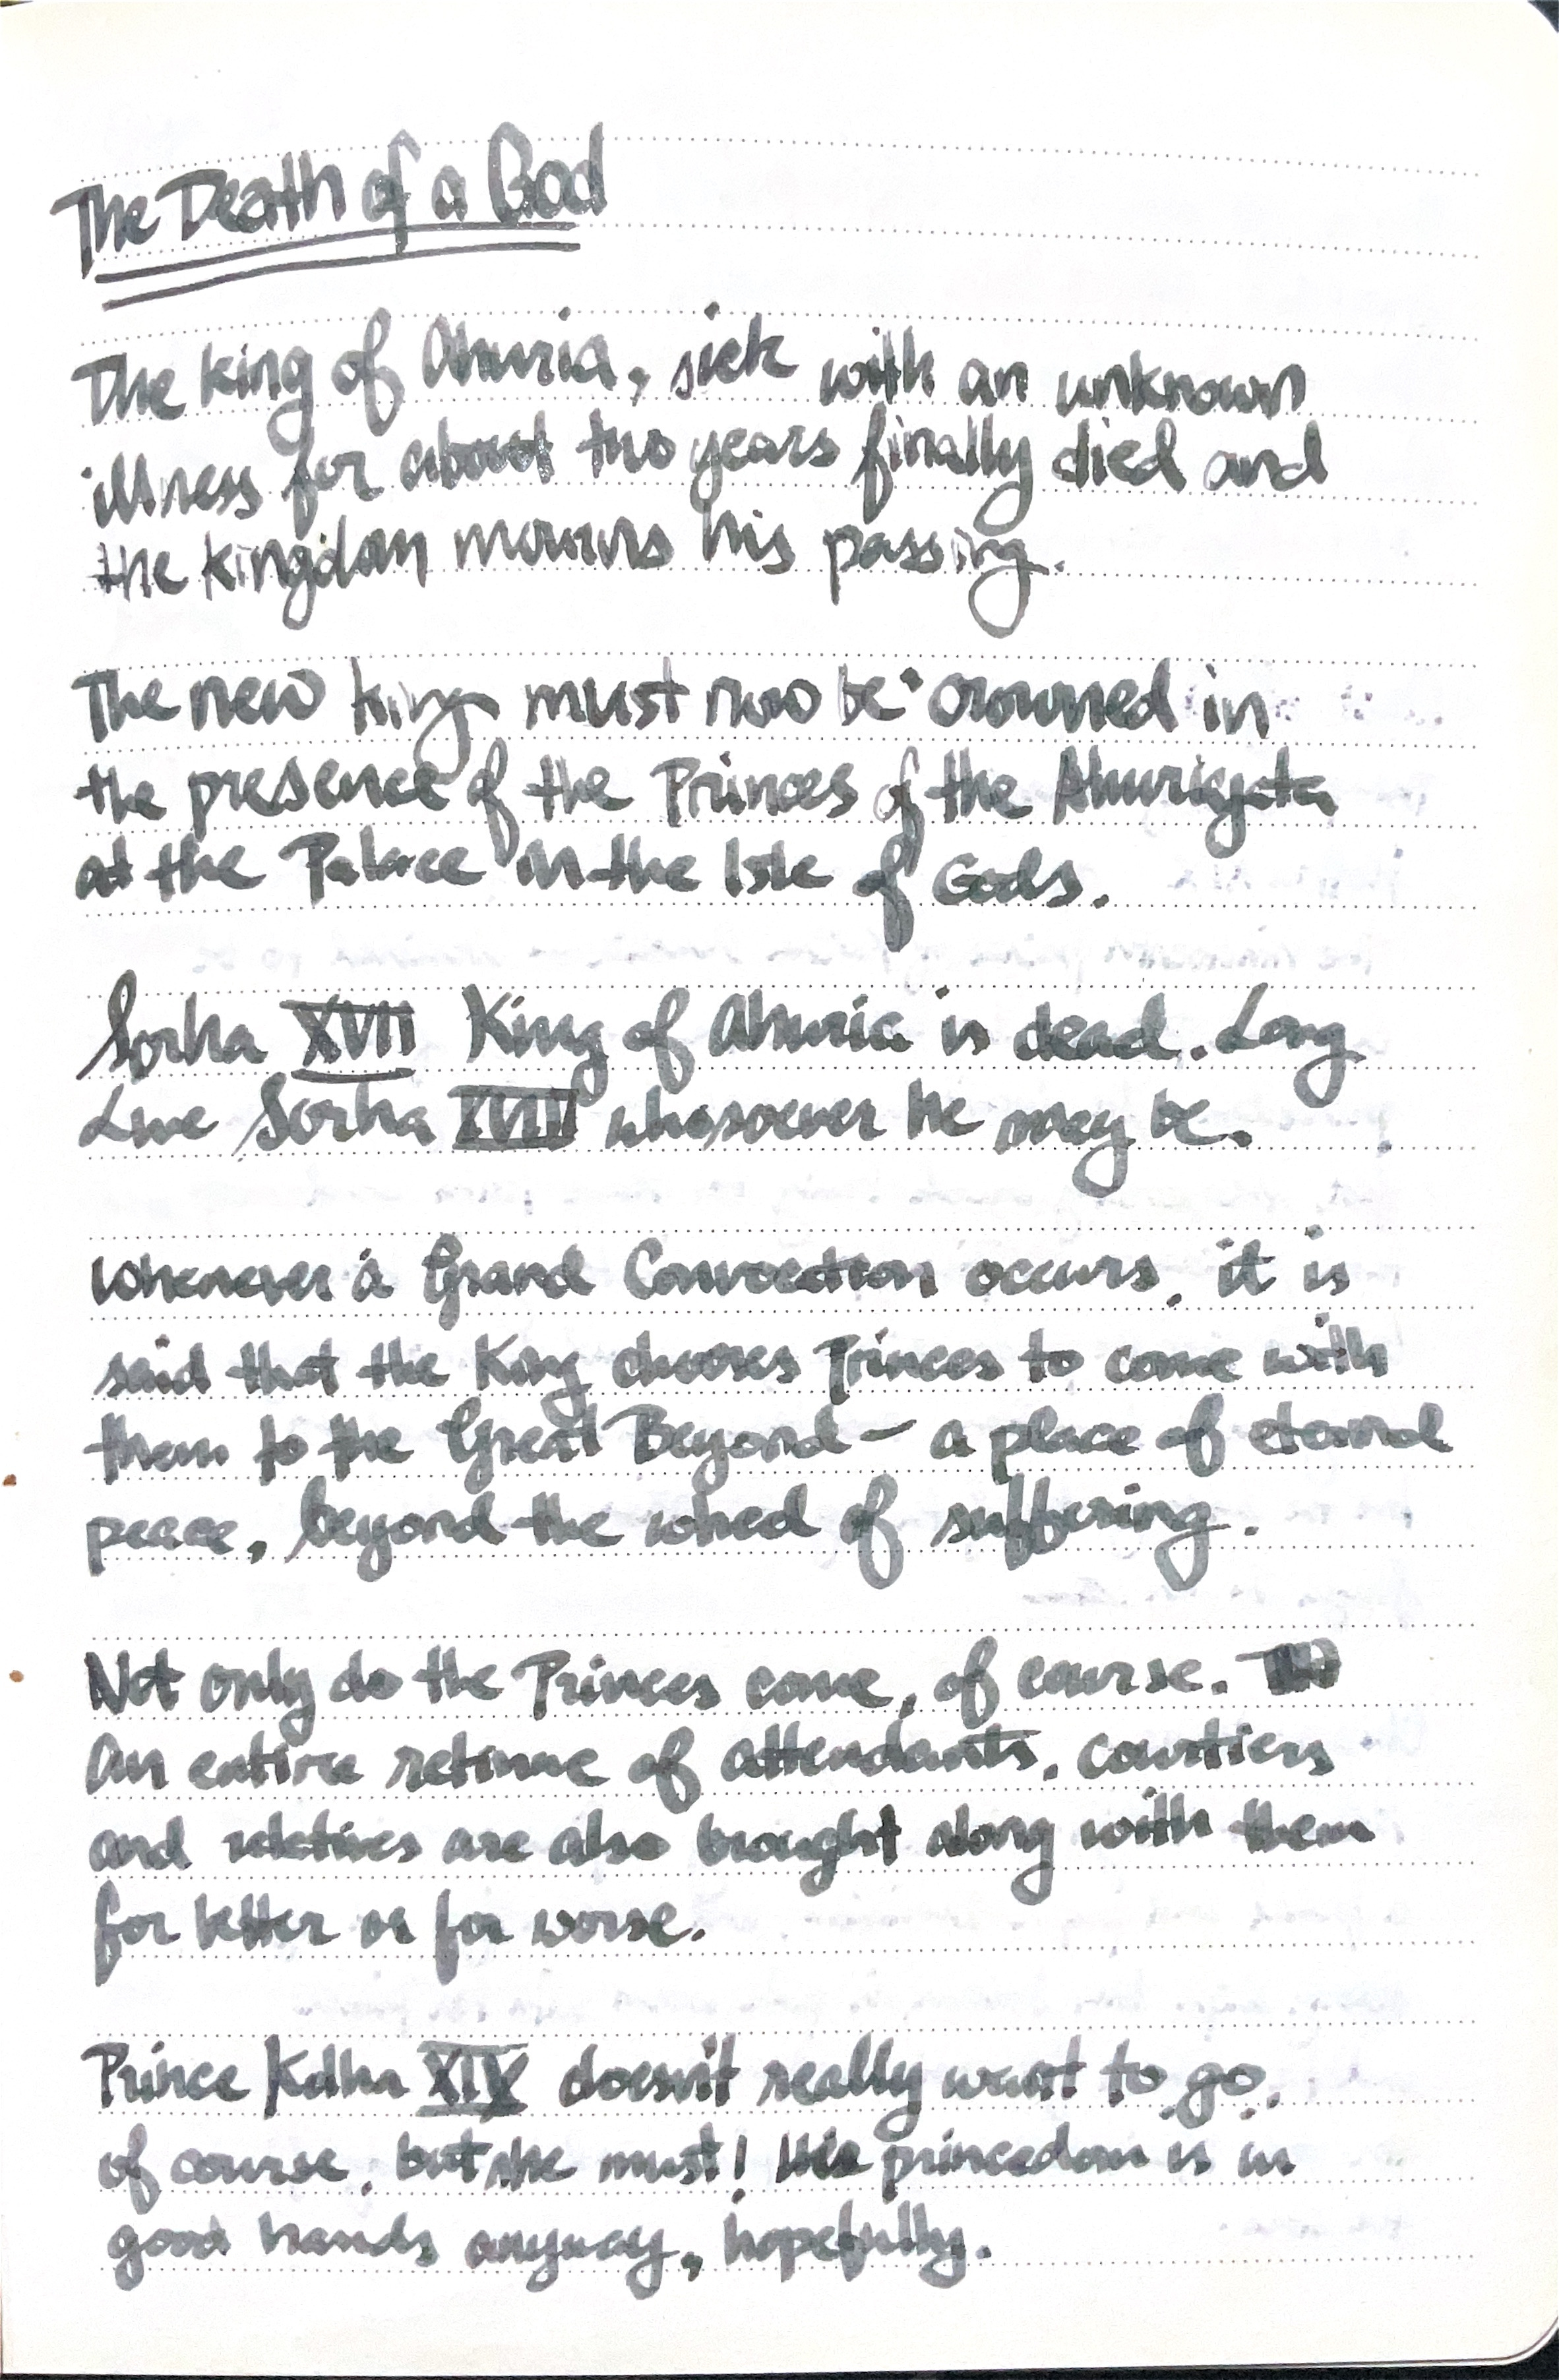 The Death of a God
The king of Ahuria, sick with an unknown
illness for about two years finally died and
the kingdom mourns his passing.
The new king must now be crowned in
the presence of the Princes of the Ahurigata
at the Palace in the Isle of Gods.
Sorha XVII King of Ahuria is dead. Long
Live Sorha XVIII whosoever he may be.
Whenever a Grand Convocation occurs, it is
said that the King chooses Princes to come with
them to the Great Beyond - a place of eternal
peace, beyond the wheel of suffering.
Not only do the Princes come, of course.
An entire retinue of attendants, courtiers
and relatives are also brought along with them
for better or for worse.
Prince Kelha XIX doesn't really want to go,
of course, but he must! His princedom is in
good hands anyway, hopefully.